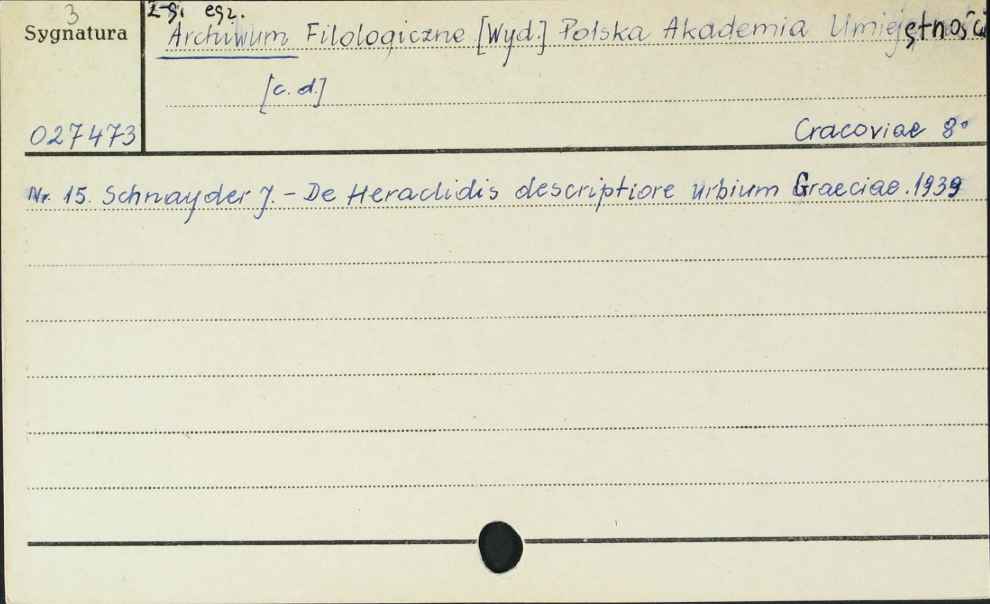 3
2-gi egz.
Sygnatura
Archiwum Filologiczne [Wyd.] Polska Akademia Umiejętności
[c. d.]
027473
Cracoviae 8°
Nr. 15. Schnayder J. - De Heraclidis descriptiore urbium Graeciae. 1939